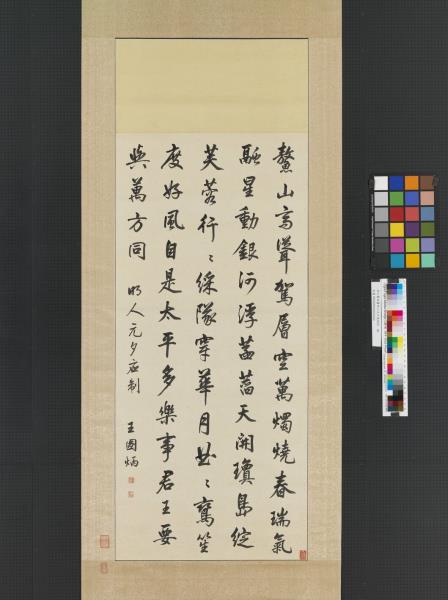 鰲山高聳駕層空萬燭燒春瑞氣
融星動銀河浮菡萏天開瓊島綻
芙蓉行〻綵隊穿華月曲〻鸞笙
度好風自是太平多樂事君王要
與萬方同
明人元夕应制
王國炳